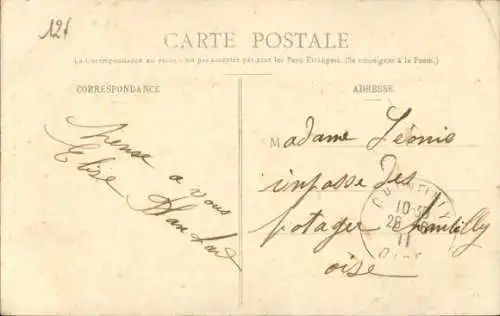 121
CARTE POSTALE
La Correspondance au recto n'est pas acceptée par tous les Pays Etrangers. (Se renseigner à la Poste.)
CORRESPONDANCE
ADRESSE
a vous
Elise
Madame Léonie
impasse des
potager Chantilly
oise
10
26
11